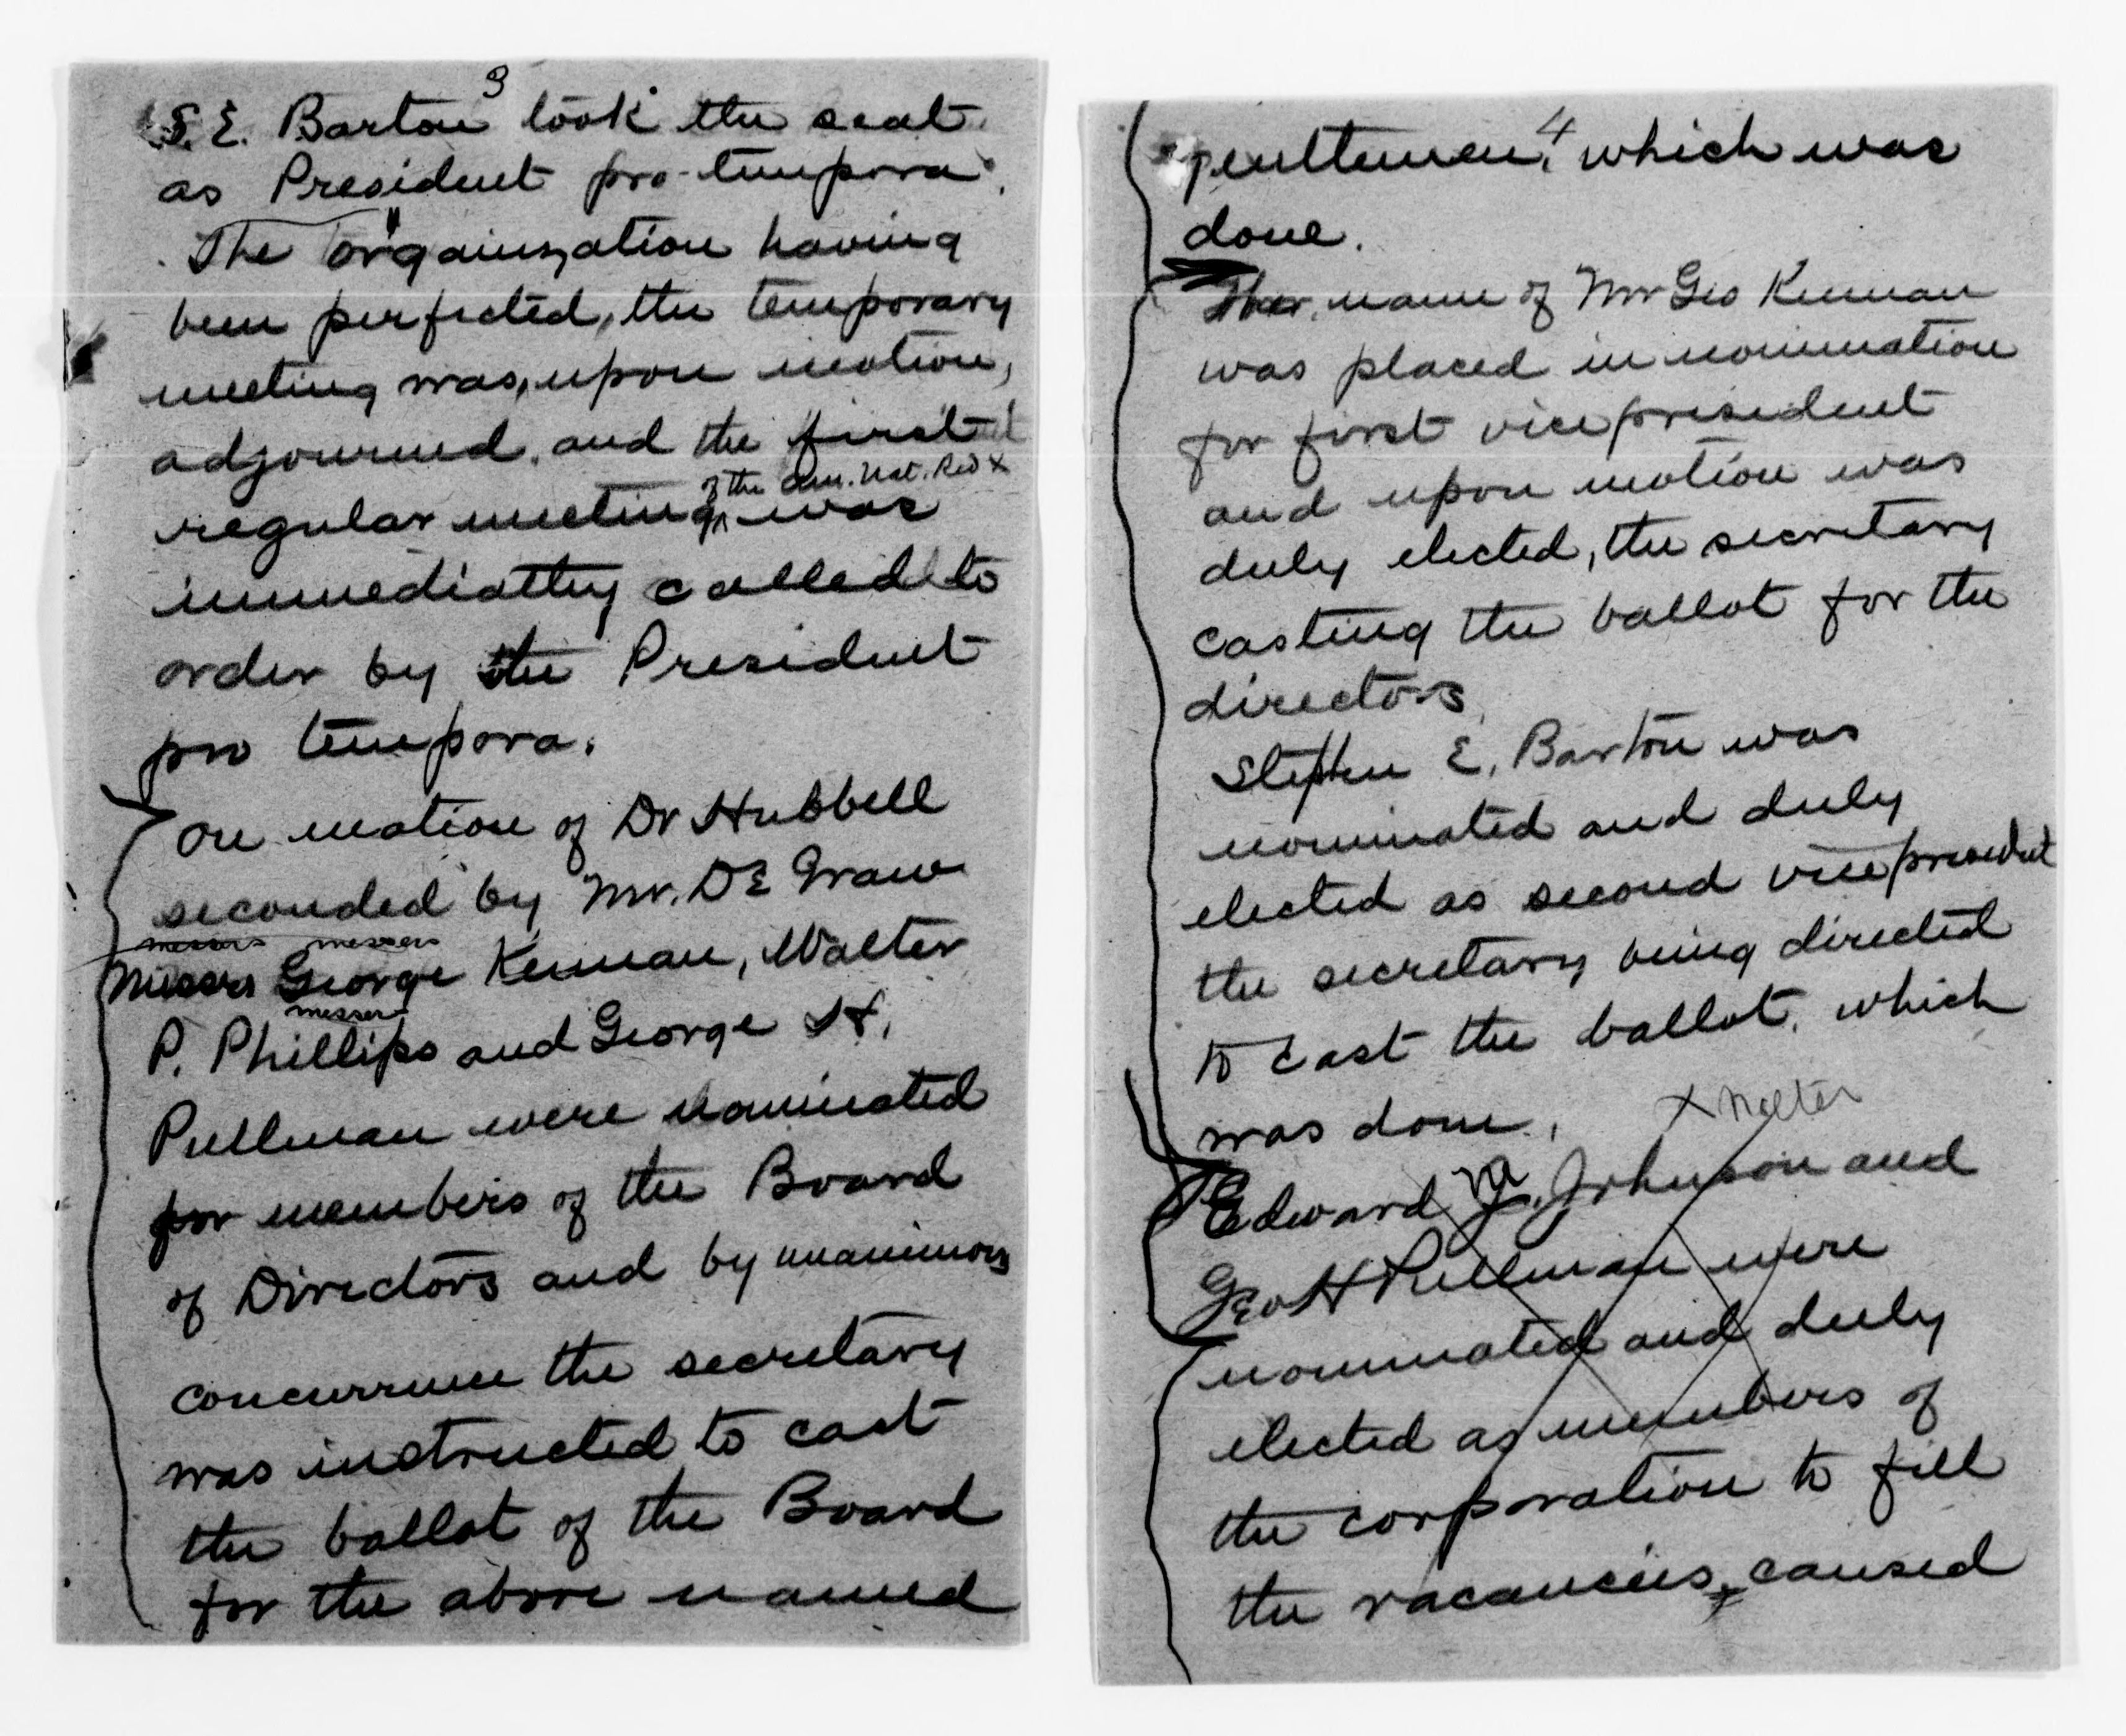 3
S. E. Barton took the seat
as President pro-tempora.
The organization having
been perfected, the temporary
meeting was, upon motion,
adjourned, and the first
of the Am. Nat. Red X
regular meeting was
immediattly called to
order by the President
pro tempora.
On motion of Dr Hubbell
seconded by Mr. DE Graw
messrs messers
Messrs George Kennan, Walter
messer
P. Phillips and George H.
Pullman were nominated
for members of the Board
of Directors and by unanimous
concurrence the secretary
was instructed to cast
the ballot of the Board
for the above named
4
gentlemen, which was
done.
The name of Mr Geo Kennan
was placed in nomination
for first vice president
and upon motion was
duly elected, the secretary
casting the ballot for the
directors
Stephen E. Barton was
nominated and duly
elected as second vice president
the secretary being directed
to cast the ballot, which
was done.
X Walter
Edward Johnson and
Geo H Pullman were
nominated and duly
elected as members of
the corporation to fill
the vacancies caused